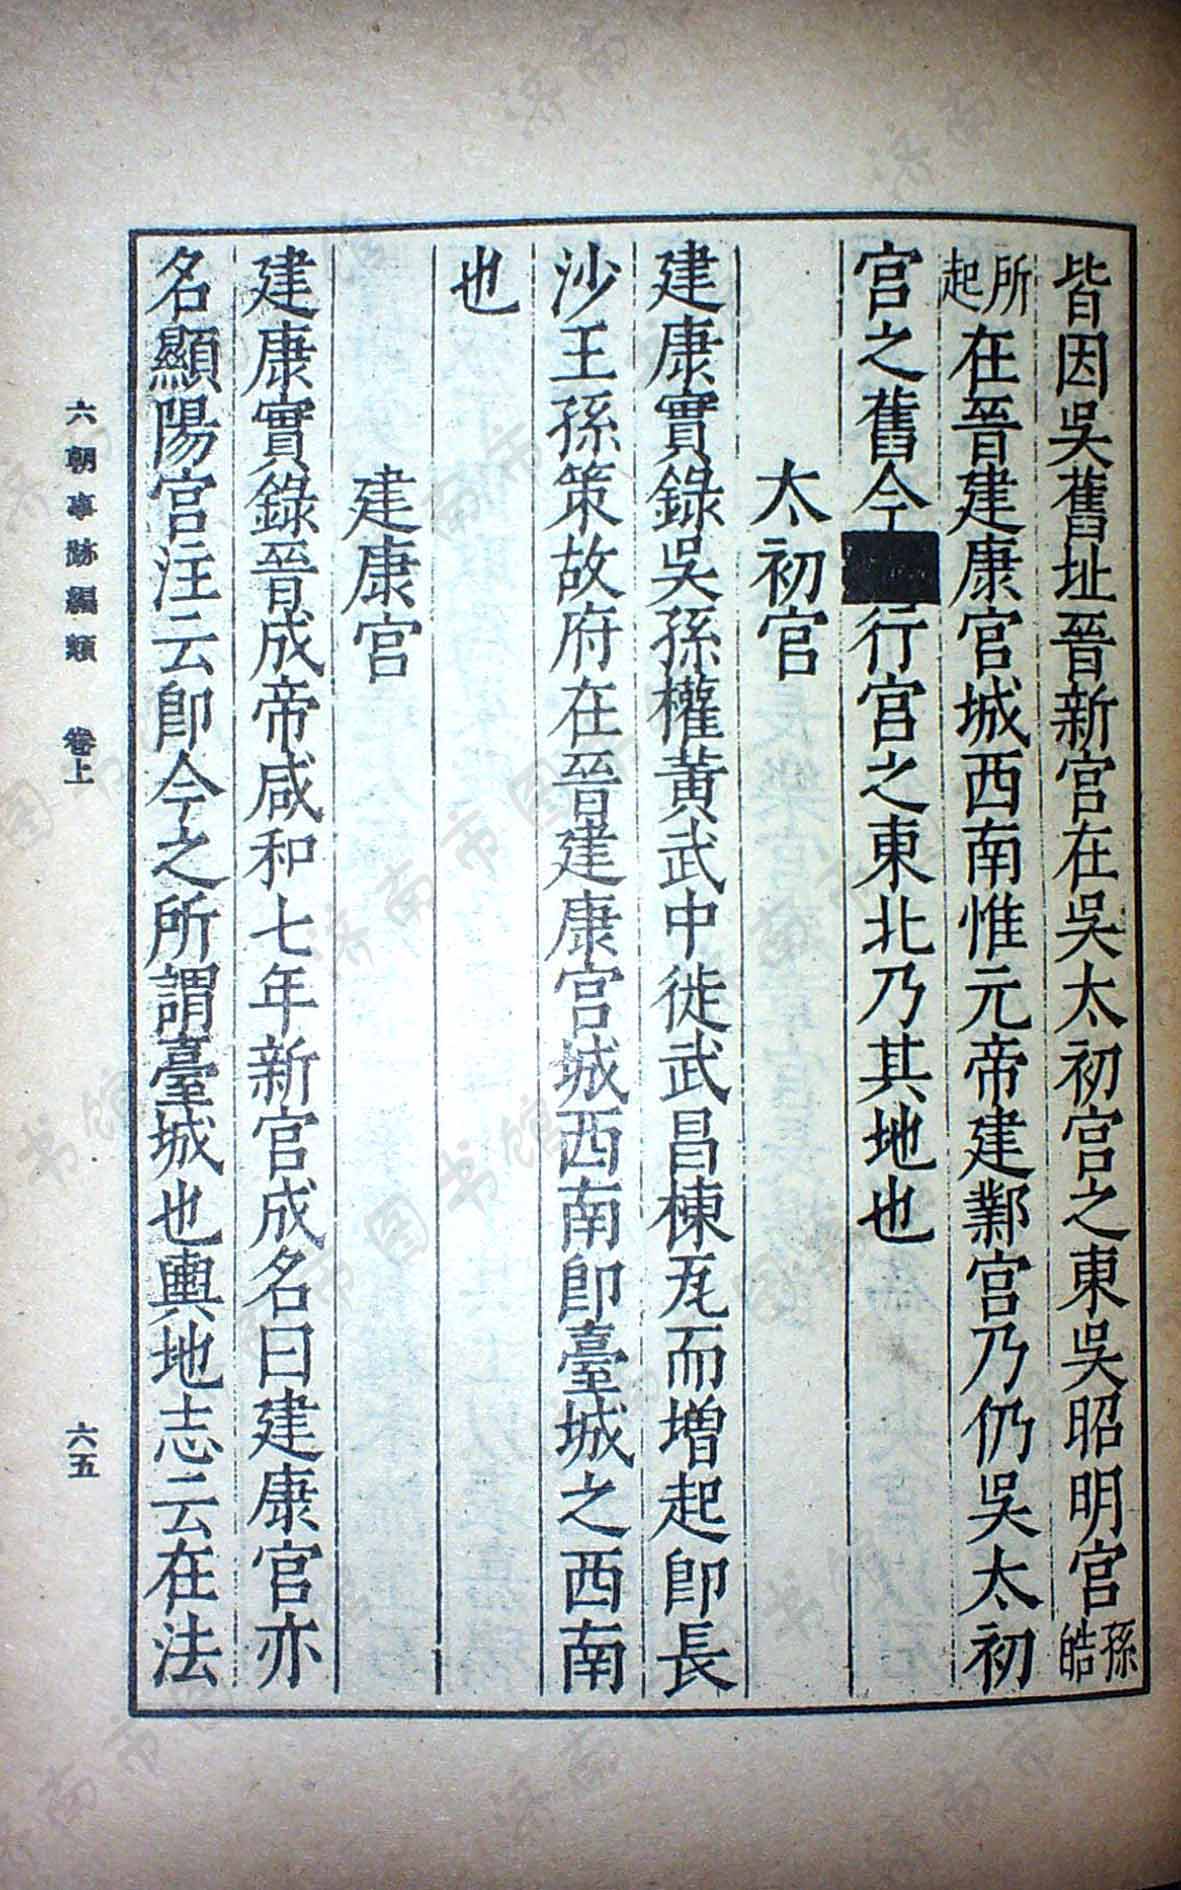 皆因吳舊址晉新宮在吳太初宮之東吳昭明宮孫皓
所起在晉建康宮城西南惟元帝建鄴宮乃仍吳太初
宮之舊今行宮之東北乃其地也
太初宮
建康實錄吳孫權黃武中徙武昌棟瓦而增起卽長
沙王孫策故府在晉建康宮城西南卽臺城之西南
也
建康宮
建康實錄晉成帝咸和七年新宮成名曰建康宮亦
名顯陽宮注云卽今之所謂臺城也輿地志云在法
六朝事跡編類 卷上
六五
济南市图书馆